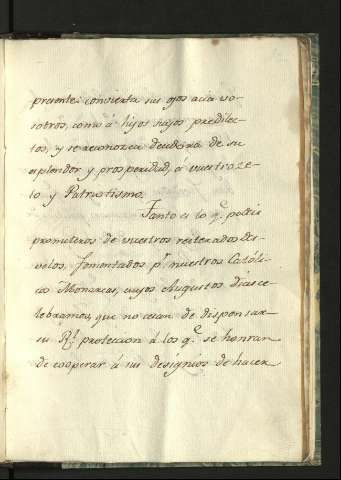 presente: convierta sus ojos acia vo-
sotros, como á hijos suyos predilec-
tos, y se reconozca deudora de su
esplendor y prosperidad, á vuestro ze-
lo y Patriotismo.
Tanto es lo q.e podeis
prometeros de vuestros reiterados des-
velos, fomentados p.r nuestros Catoli-
cos Monarcas, cuyos Augustos dias ce-
lebramos, que no cesan de dispensar
su R.l proteccion á los q.e se honran
de cooperar á sus designios de hacer